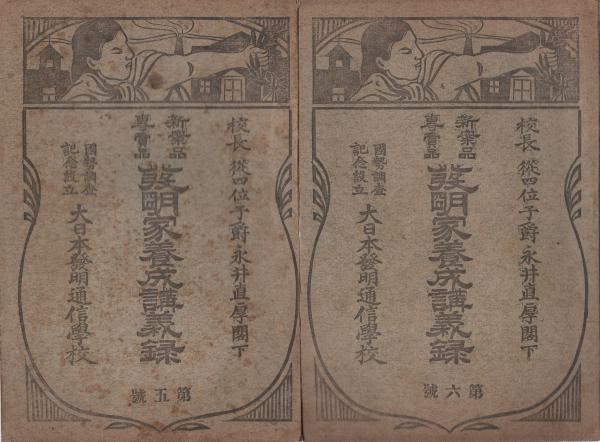 校長 從四位子爵永井直厚閣下
新案品
專賣品
發明家養成講義錄
國勢調査
記念設立
大日本發明通信學校
第五號
校長 從四位子爵永井直厚閣下
新案品
專賣品
發明家養成講義錄
國勢調査
記念設立
大日本發明通信學校
第六號